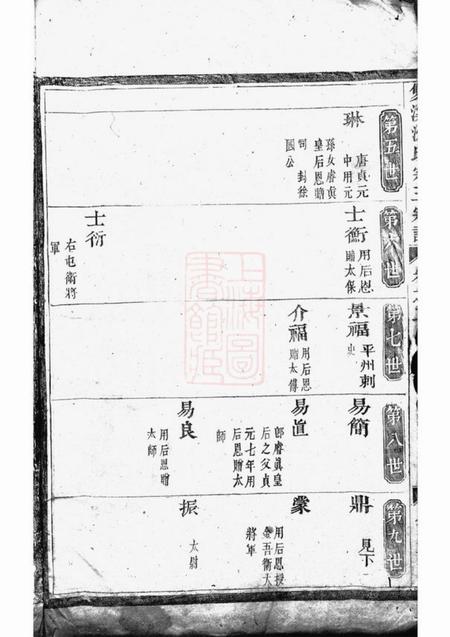 第五世
琳
唐貞元
中用元
孫女睿眞
皇后恩贈
司封徐
國公
第六世
士衡
用后恩
贈太保
士衍
右屯衛將
軍
第七世
景福
平州刺
史
介福
用后恩
贈太傅
第八世
易簡
易直
卽睿眞皇
后之父貞
元七年用
后恩贈太
師
易良
用后恩贈
太師
第九世
鼎
見下
蒙
用后恩授
金吾衛大
將軍
振
太尉
上海圖
書館藏